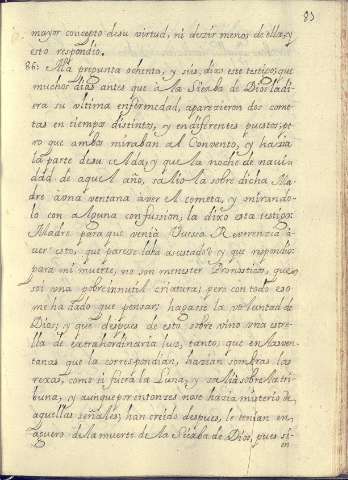 83
mayor concepto desu virtud, ni dezir menos de ella; y
esto respondio.
86. A la pregunta ochenta, y seis, dixo este testigo; que
muchos dias antes que a la Sierba de Dios ladi
era su ultima enfermedad, aparezieron dos come
tas en tiempos distintos, y endiferentes puestos; pe
ro que ambos miraban al Convento, y hazia
la parte desu Celda; y que la noche de navi
dad de aquel año, salio la sobre dicha Ma
dre a una ventana aver el cometa, y mirando
lo con alguna confussion, la dixo esta testigo:
Madre para que venia Vuessa Reverencia a
ver esto, que parece laha asustado? y que respondio:
para mi muerte, no son menester Pronosticos, que
soi una pobre innutil criatura; pero con todo eso
me ha dado que pensar; hagasse la voluntad de
Dios; y que despues de esto sobre vino una estre
lla de extrahordinaria luz, tanto, que en las ven
tanas que la correspondian, hazian sombras las
rexas, como si fuera la Luna; y salia sobre la tri
buna; y aunque por entonses no se hazia misterio de
aquellas señales; han creido despues, le tenian en
aguero de la muerte de la Sierba de Dios, pues si
en